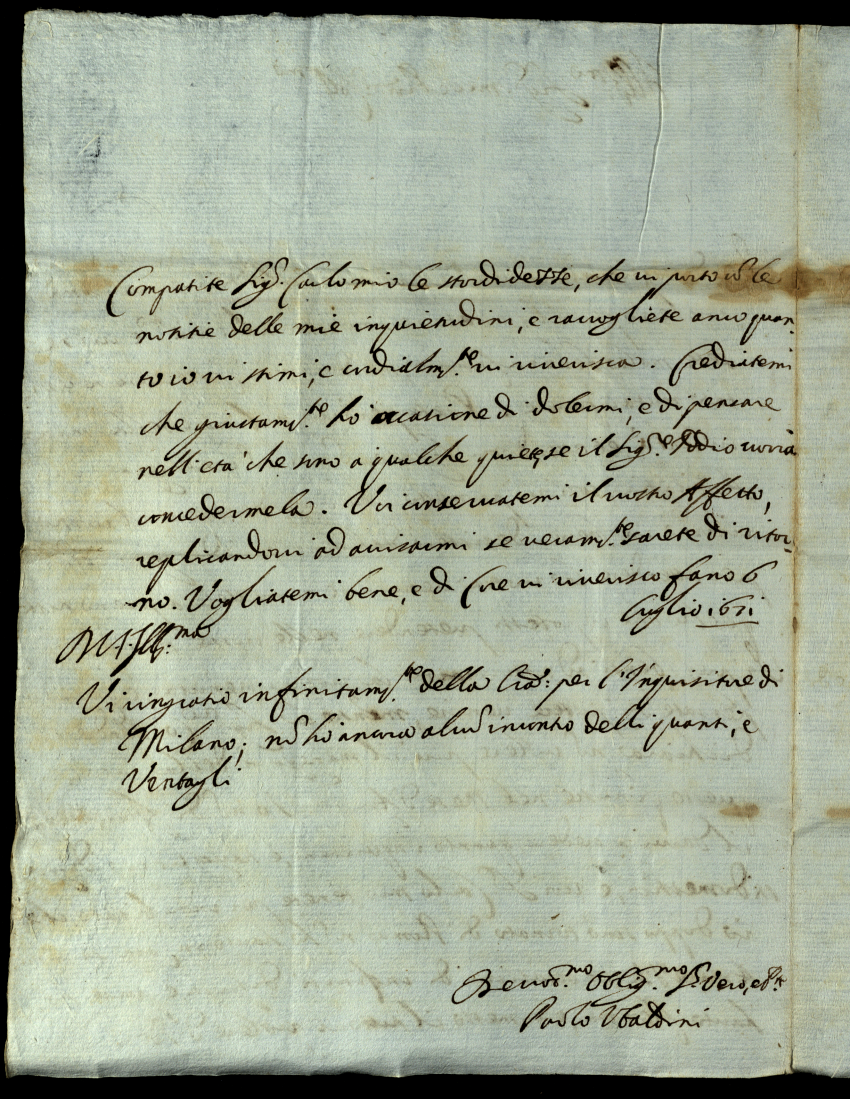 Compatite Sig.r Carlo mio le stordidezze, che vi porto cō le
notitie delle mie inquietudini, e raccogliete anco quan-
to io vi stimi, e cordialm.te vi riverisca. Crediatemi
che giustam.te hò occasione di dolermi, e di pensare
nell'età che sono a qualche quiete, se il Sig.re Iddio vorrà
concedermela. Voi conservatemi il vostro Affetto,
replicandovi ad avisarmi se veram.te sarete di ritor-
no. Vogliatemi bene, e di Core vi riverisco fano 6
luglio 1671
Vi ringratio infinitam.te della l'ra: per l'Inquisitore di
Milano; nō hò ancora alcū incontro delli quanti, e
Ventagli
Devot.mo Oblig.mo S.r Vero, e
Paolo Ubaldini